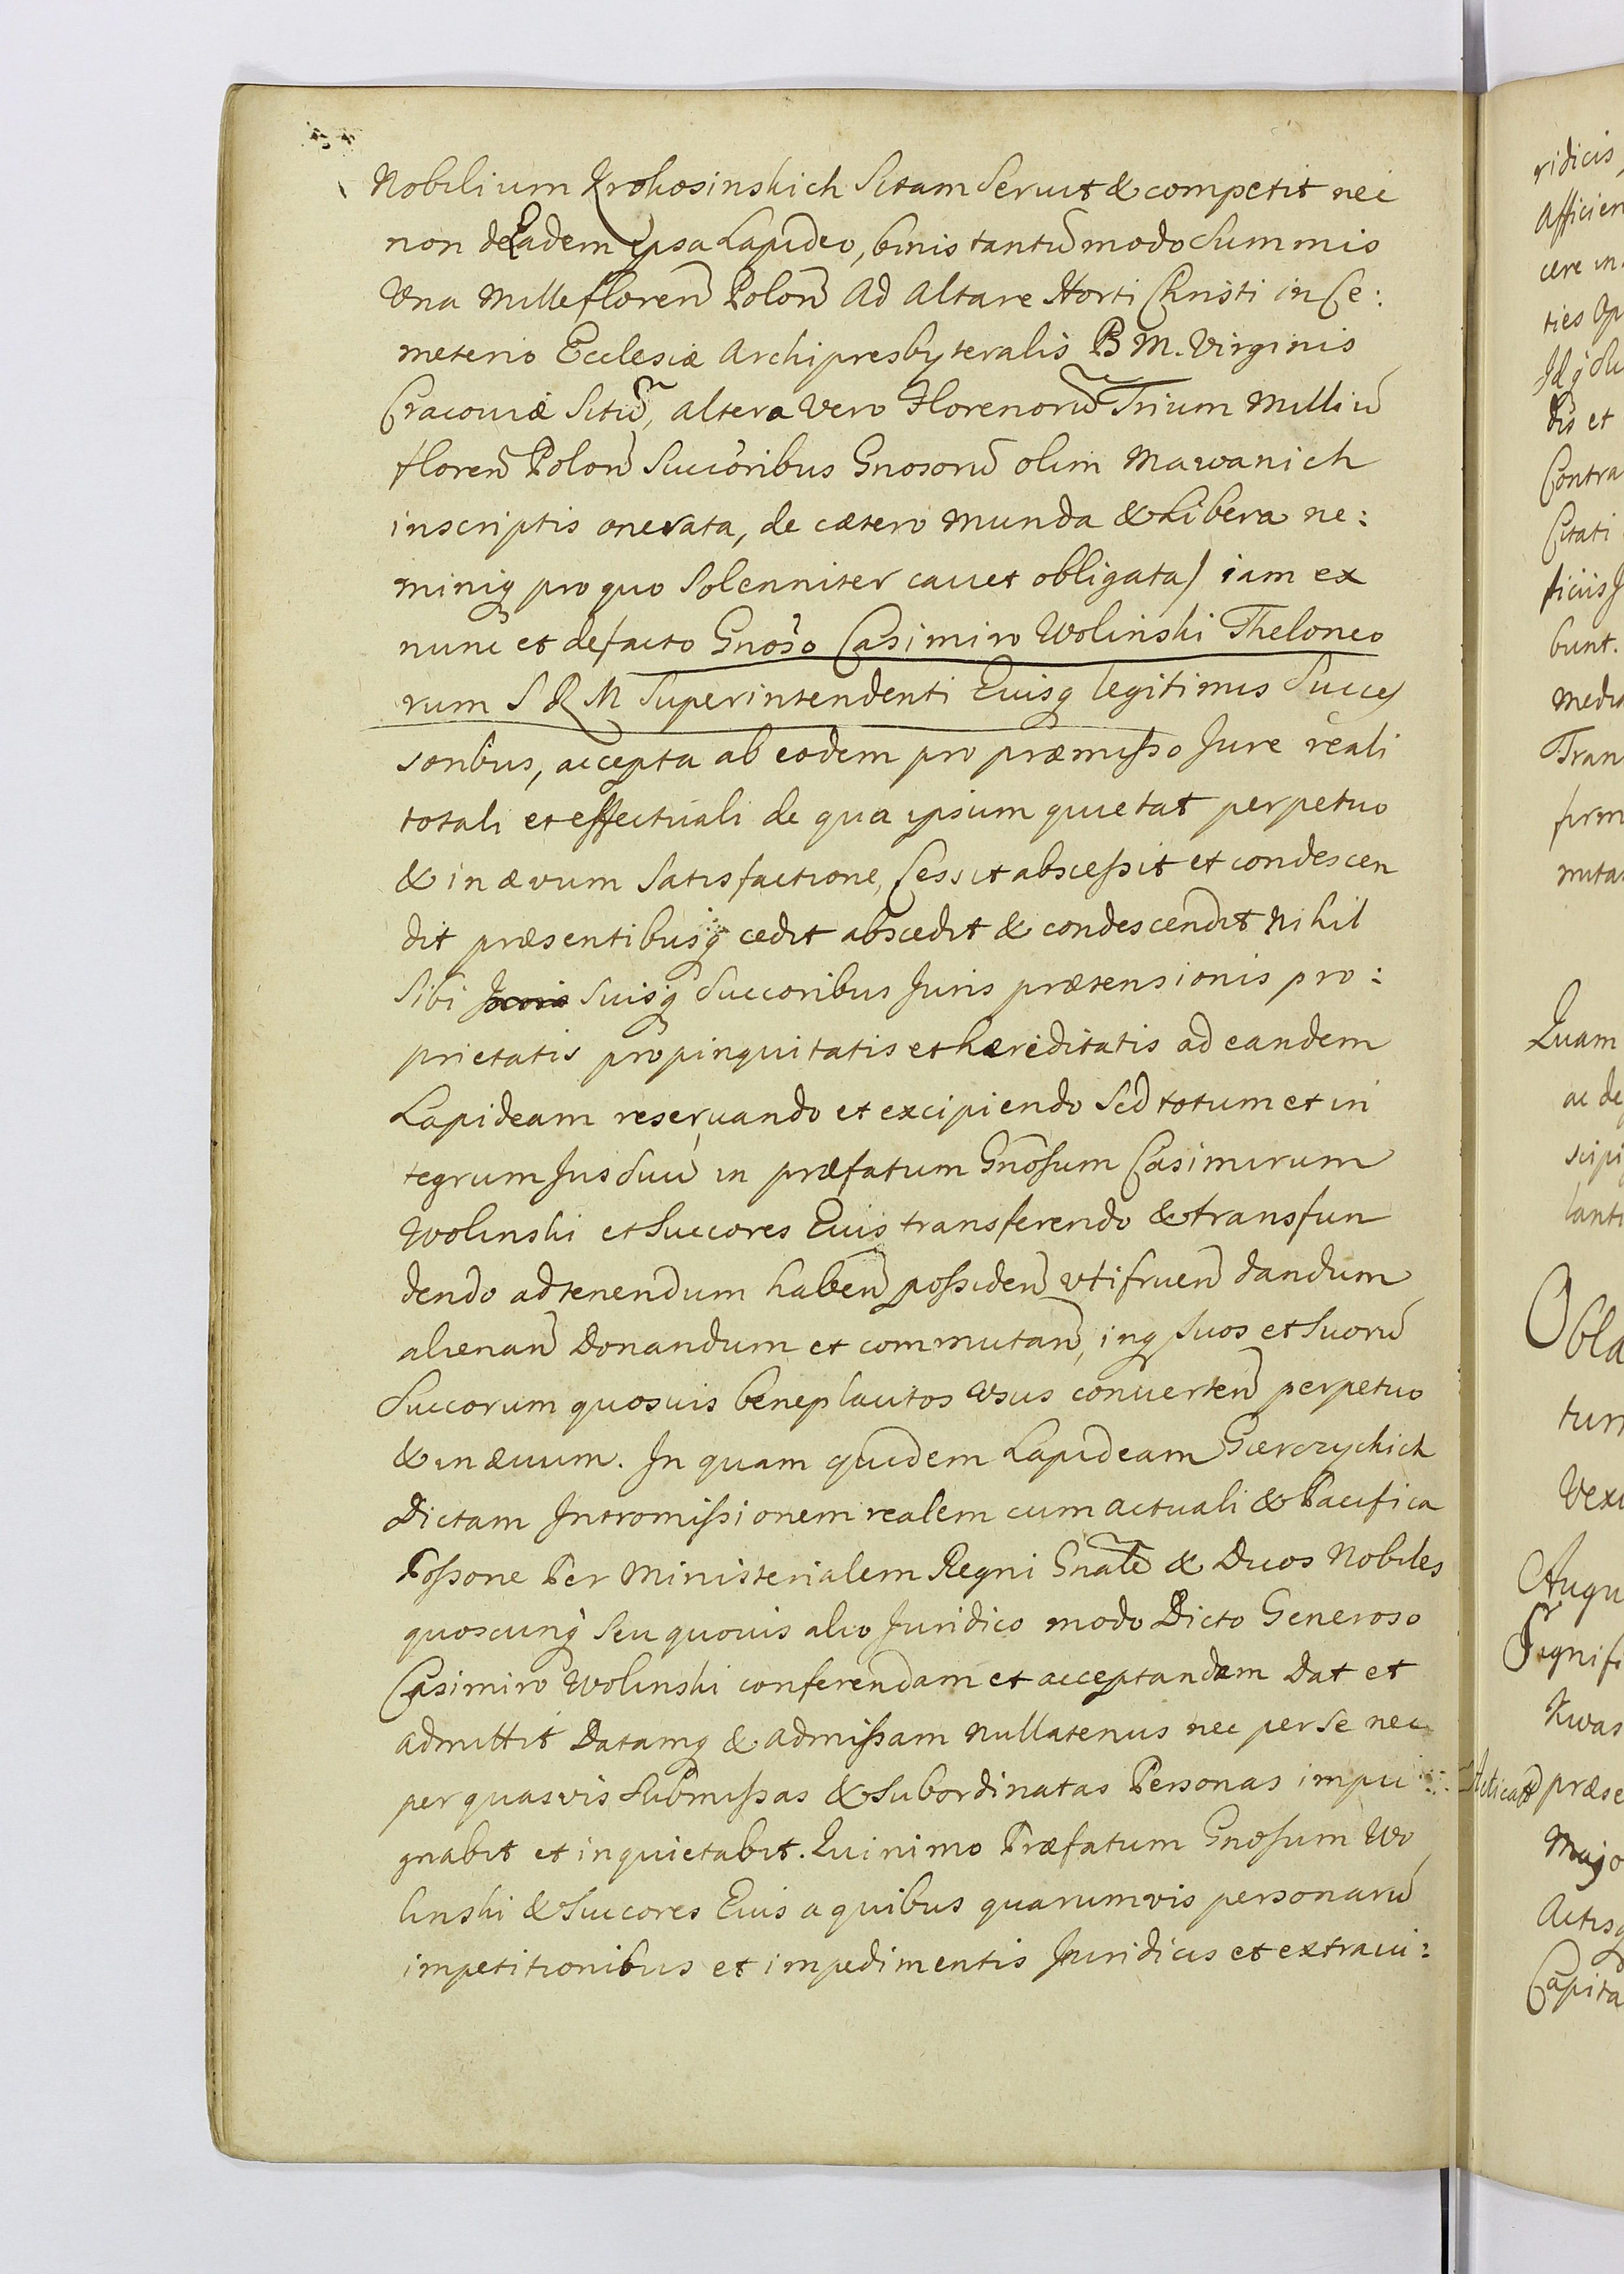 Nobilium Krokosinskich Sitam Servit & competit nec
non de Eadem Ipsa Lapideo, binis tantũmodo Summis
Una Mille floreñ Poloñ Ad Altare Horti Christi in Ce:
meterio Ecclesiæ Archipresbyteralis B M. Virginis
Cracoviæ Sitũ, altera Vero Florenorũ Trium Milliũ
floreñ Poloñ Succoribus Gnosorũ olim Mawanich
inscriptis onerata, de cætero munda & Libera ne:
miniq pro quo Solenniter cavet obligata) iam ex
nunc et defacto Gnoso Casimiro Wolinski Theloneo
rum S R M Superintendenti Euisq legitimis Succes
soribus, accepta ab eodem pro præmisso Jure reali
totali et effectuali de qua ipsum quietat perpetuo
& in ævum Satisfactione, Cessit abscessit et condescen
dit præsentibusq cedit abscedit & condescendit Nihil
Sibi Suisq Succoribus Juris prætensionis pro:
prietatis propinquitatis et hæreditatis ad eandem
Lapideam reservando et excipiendo Sed totum et in
tegrum Jus Suũ in præfatum Gnosum Casimirum
Wolinski et Succores Euis transferendo & transfun
dendo ad tenendum habeñ possideñ utifrueñ dandum
alienañ Donandum et commutañ, inq Suos et Suorũ
Succorum quosvis beneplacitos Usus converteñ perpetuo
& in ævum. In quam quidem Lapideam Gierczychich
Dictam Intromissionem realem cum actuali & Pacifica
Possone Per Ministerialem Regni Gnale & Duos Nobiles
quoscunq Seu quovis alio Juridico modo Dicto Generoso
Casimiro Wolinski conferendam et acceptandam Dat et
admittit Datamq & admissam nullatenus nec per Se nec
per quasvis Submissas & Subordinatas Personas impu
gnabit et inquietabit. Quinimo Præfatum Gnosum Wo
linski & Succores Euis a quibus quarumvis personarũ
impetitionibus et impedimentis Juridicis et extraiu:
ridicis
Afficien
cere in
ties
dis et
Contra
Citati
bunt.
Tran
firm
muta
Quam
ac de
Obla
tum
Augu
Signifi
Kwas
præse
Majo
Actisq
Capita